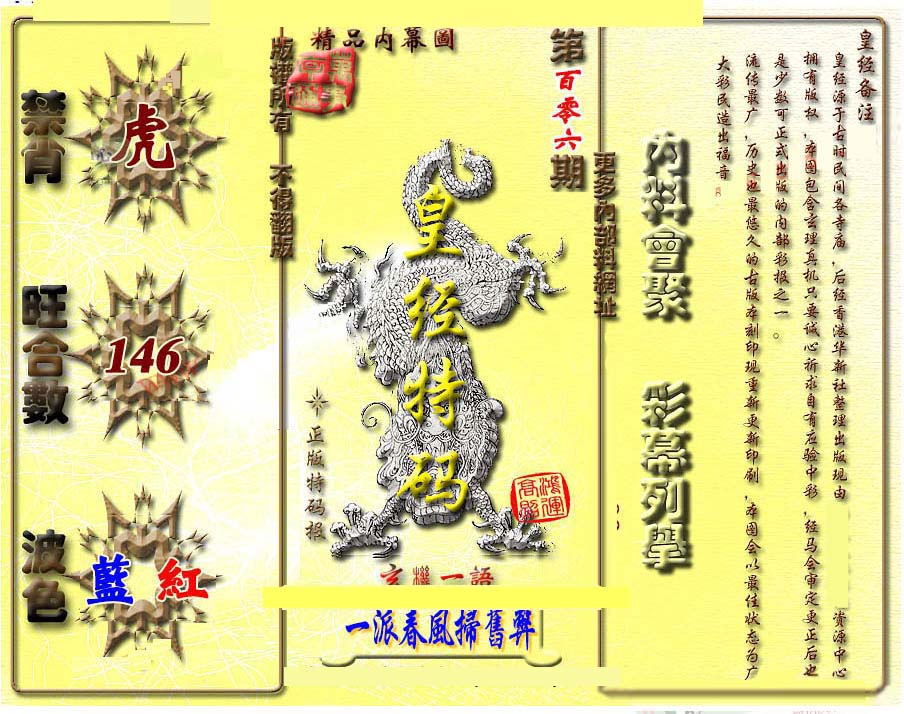 精品内幕圖
第百零六期
版權所有 不得翻版
更多內部料網址
禁肖
虎
旺合數
146
波色
藍 紅
皇经特码
正版特码报
鸿運高照
玄機一語
一派春風掃舊弊
內料會聚
彩幕列舉
皇经备注
皇经源于古时民间各寺庙,后经香港华新社整理出版现由 资源中心
拥有版权,本图包含玄理真机只要诚心祈求自有应验中彩,经马会审定更正后也
是少数可正式出版的内部彩报之一。
流传最广,历史也最悠久的古版本刻印现重新更新印刷,本图会以最佳状态为广
大彩民造出福音